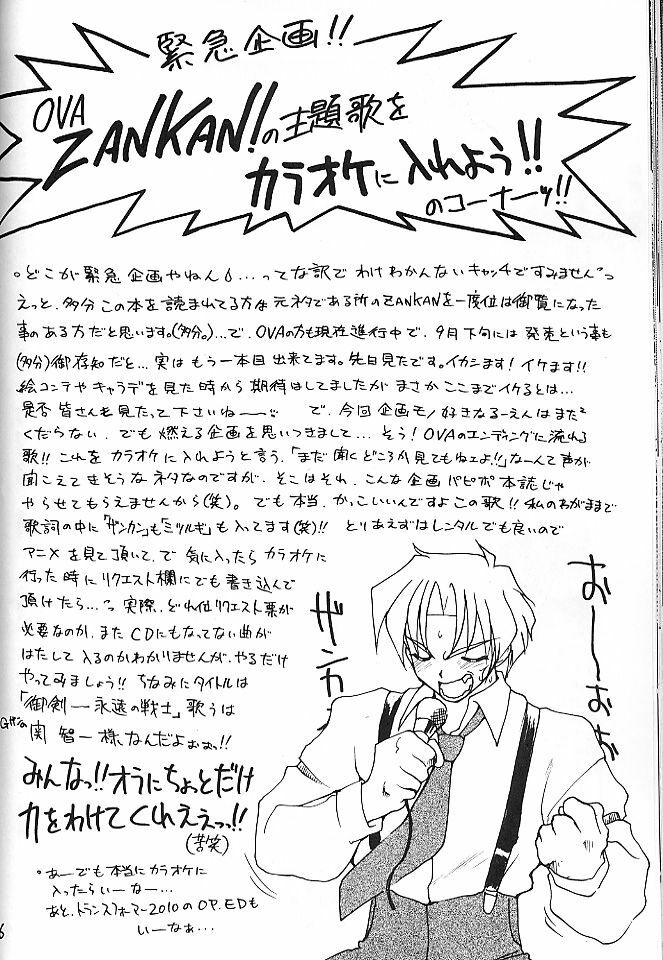 緊急企画!!
OVA
ZANKAN!の主題歌を
カラオケに入れよう!!
のコーナーッ!!
・どこが緊急企画やねん6…ってな訳でわけわかんないキャッチですみません〃っ
えっと、多分この本を読まれてる方は元ネタである所のZANKANを一度位は御覧になった
事のある方だと思います。(多分。)…で、OVAの方も現在進行中で、9月下旬には発売という事も
(多分)御存知だと…実はもう一本目出来てます。先日見たです。イカシます!イケます!!
絵コンテやキャラデを見た時から期待はしてましたがまさかここまでイケるとは…
是否皆さんも見たって下さいねー〜 で、今回企画モノ好きなるーえんはまた²
くだらない、でも燃える企画を思いつきまして…そう!OVAのエンディングに流れる
歌!!これをカラオケに入れようと言う、「まだ聞くどころか見てもねェよ!!」なーんて声が
聞こえてきそうなネタなのですが、そこはそれ、こんな企画パピポ本誌じゃ
やらせてもらえませんから(笑)。でも本当、かっこいいんですよこの歌!!私のわがままで
歌詞の中に「ザンカン」も「ミツルギ」も入ってます(笑)!!とりあえずはレンタルでも良いので
アニメを見て頂いて、で気に入ったらカラオケに
行った時にリクエスト欄にでも書き込んで
頂けたら…〃。実際、どれ位リクエスト票が
必要なのか、またCDにもなってない曲が
はたして入るのかわかりませんが、やるだけ
やってみましょう!!ちなみにタイトルは
「御剣ー永遠の戦士」歌うは
関智一様、なんだよぉぉっ!!
みんなっ!!オラにちょっとだけ
力をわけてくれええっっ!!
(苦笑)
・あーでも本当にカラオケに
入ったらいーなー…
あと、トランスフォーマー2010のOP.EDも
いーなぁ…
ザンカ
おーーおぉ
6